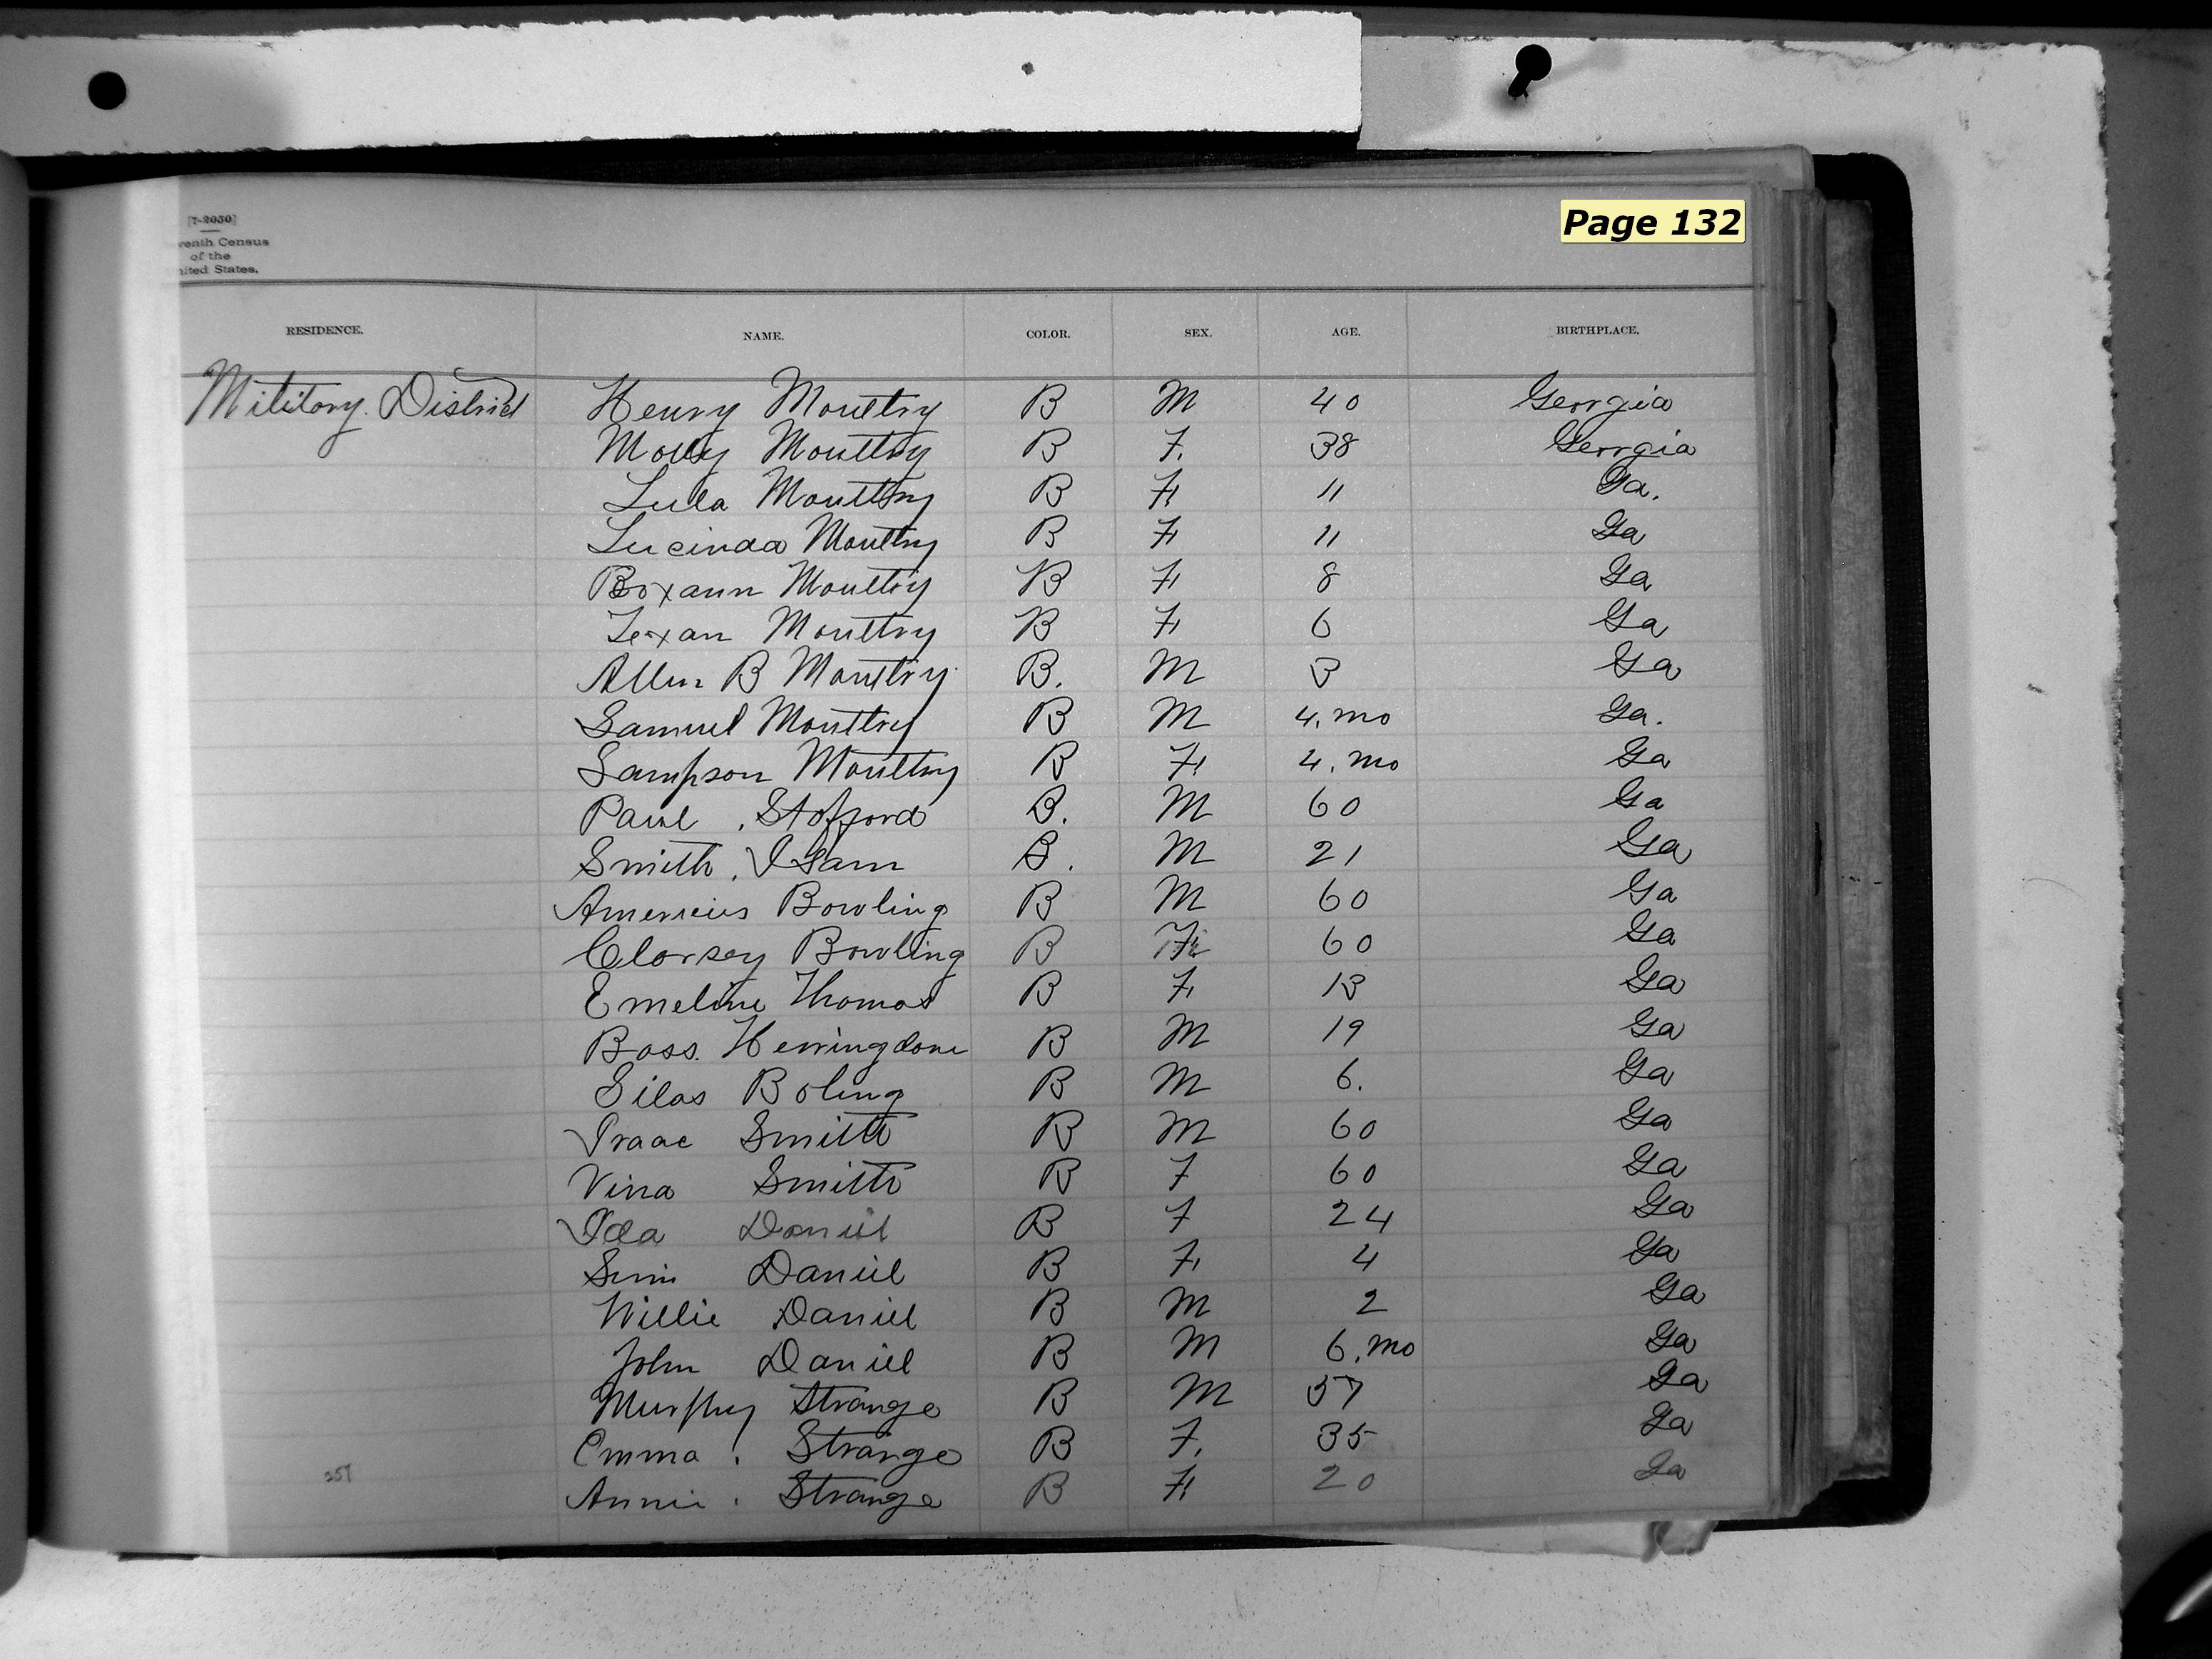 Page 132
[7-2050]
venth Census
of the
nited States.
RESIDENCE. NAME. COLOR. SEX. AGE. BIRTHPLACE.
Military. District Henry Moultry B M 40 Georgia
Molly Moultry B F. 38 Georgia
Lula Moultry B F 11 Ga.
Lucinda Moultry B F 11 Ga
Roxann Moultry B F 8 Ga
Texan Moultry B F 6 Ga
Allen B Moultry B. M 3 Ga
Samuel Moultry B M 4. mo Ga.
Sampson Moultry B F 4. mo Ga
Paul . Stofford B. M 60 Ga
Smith. Isam B. M 21 Ga
Americus Bowling B M 60 Ga
Clorsey Bowling B F 60 Ga
Emeline Thomas B F 13 Ga
Boss. Herringdone B M 19 Ga
Silas Boling B M 6. Ga
Isaac Smith B M 60 Ga
Vina Smith B F 60 Ga
Ida Daniel B F 24 Ga
Daniel B F 4 Ga
Willie Daniel B M 2 Ga
John Daniel B M 6. mo Ga
Murphy Strange B M 37 Ga
Emma . Strange B F. 35 Ga
257 Annie . Strange B F 20 Ga